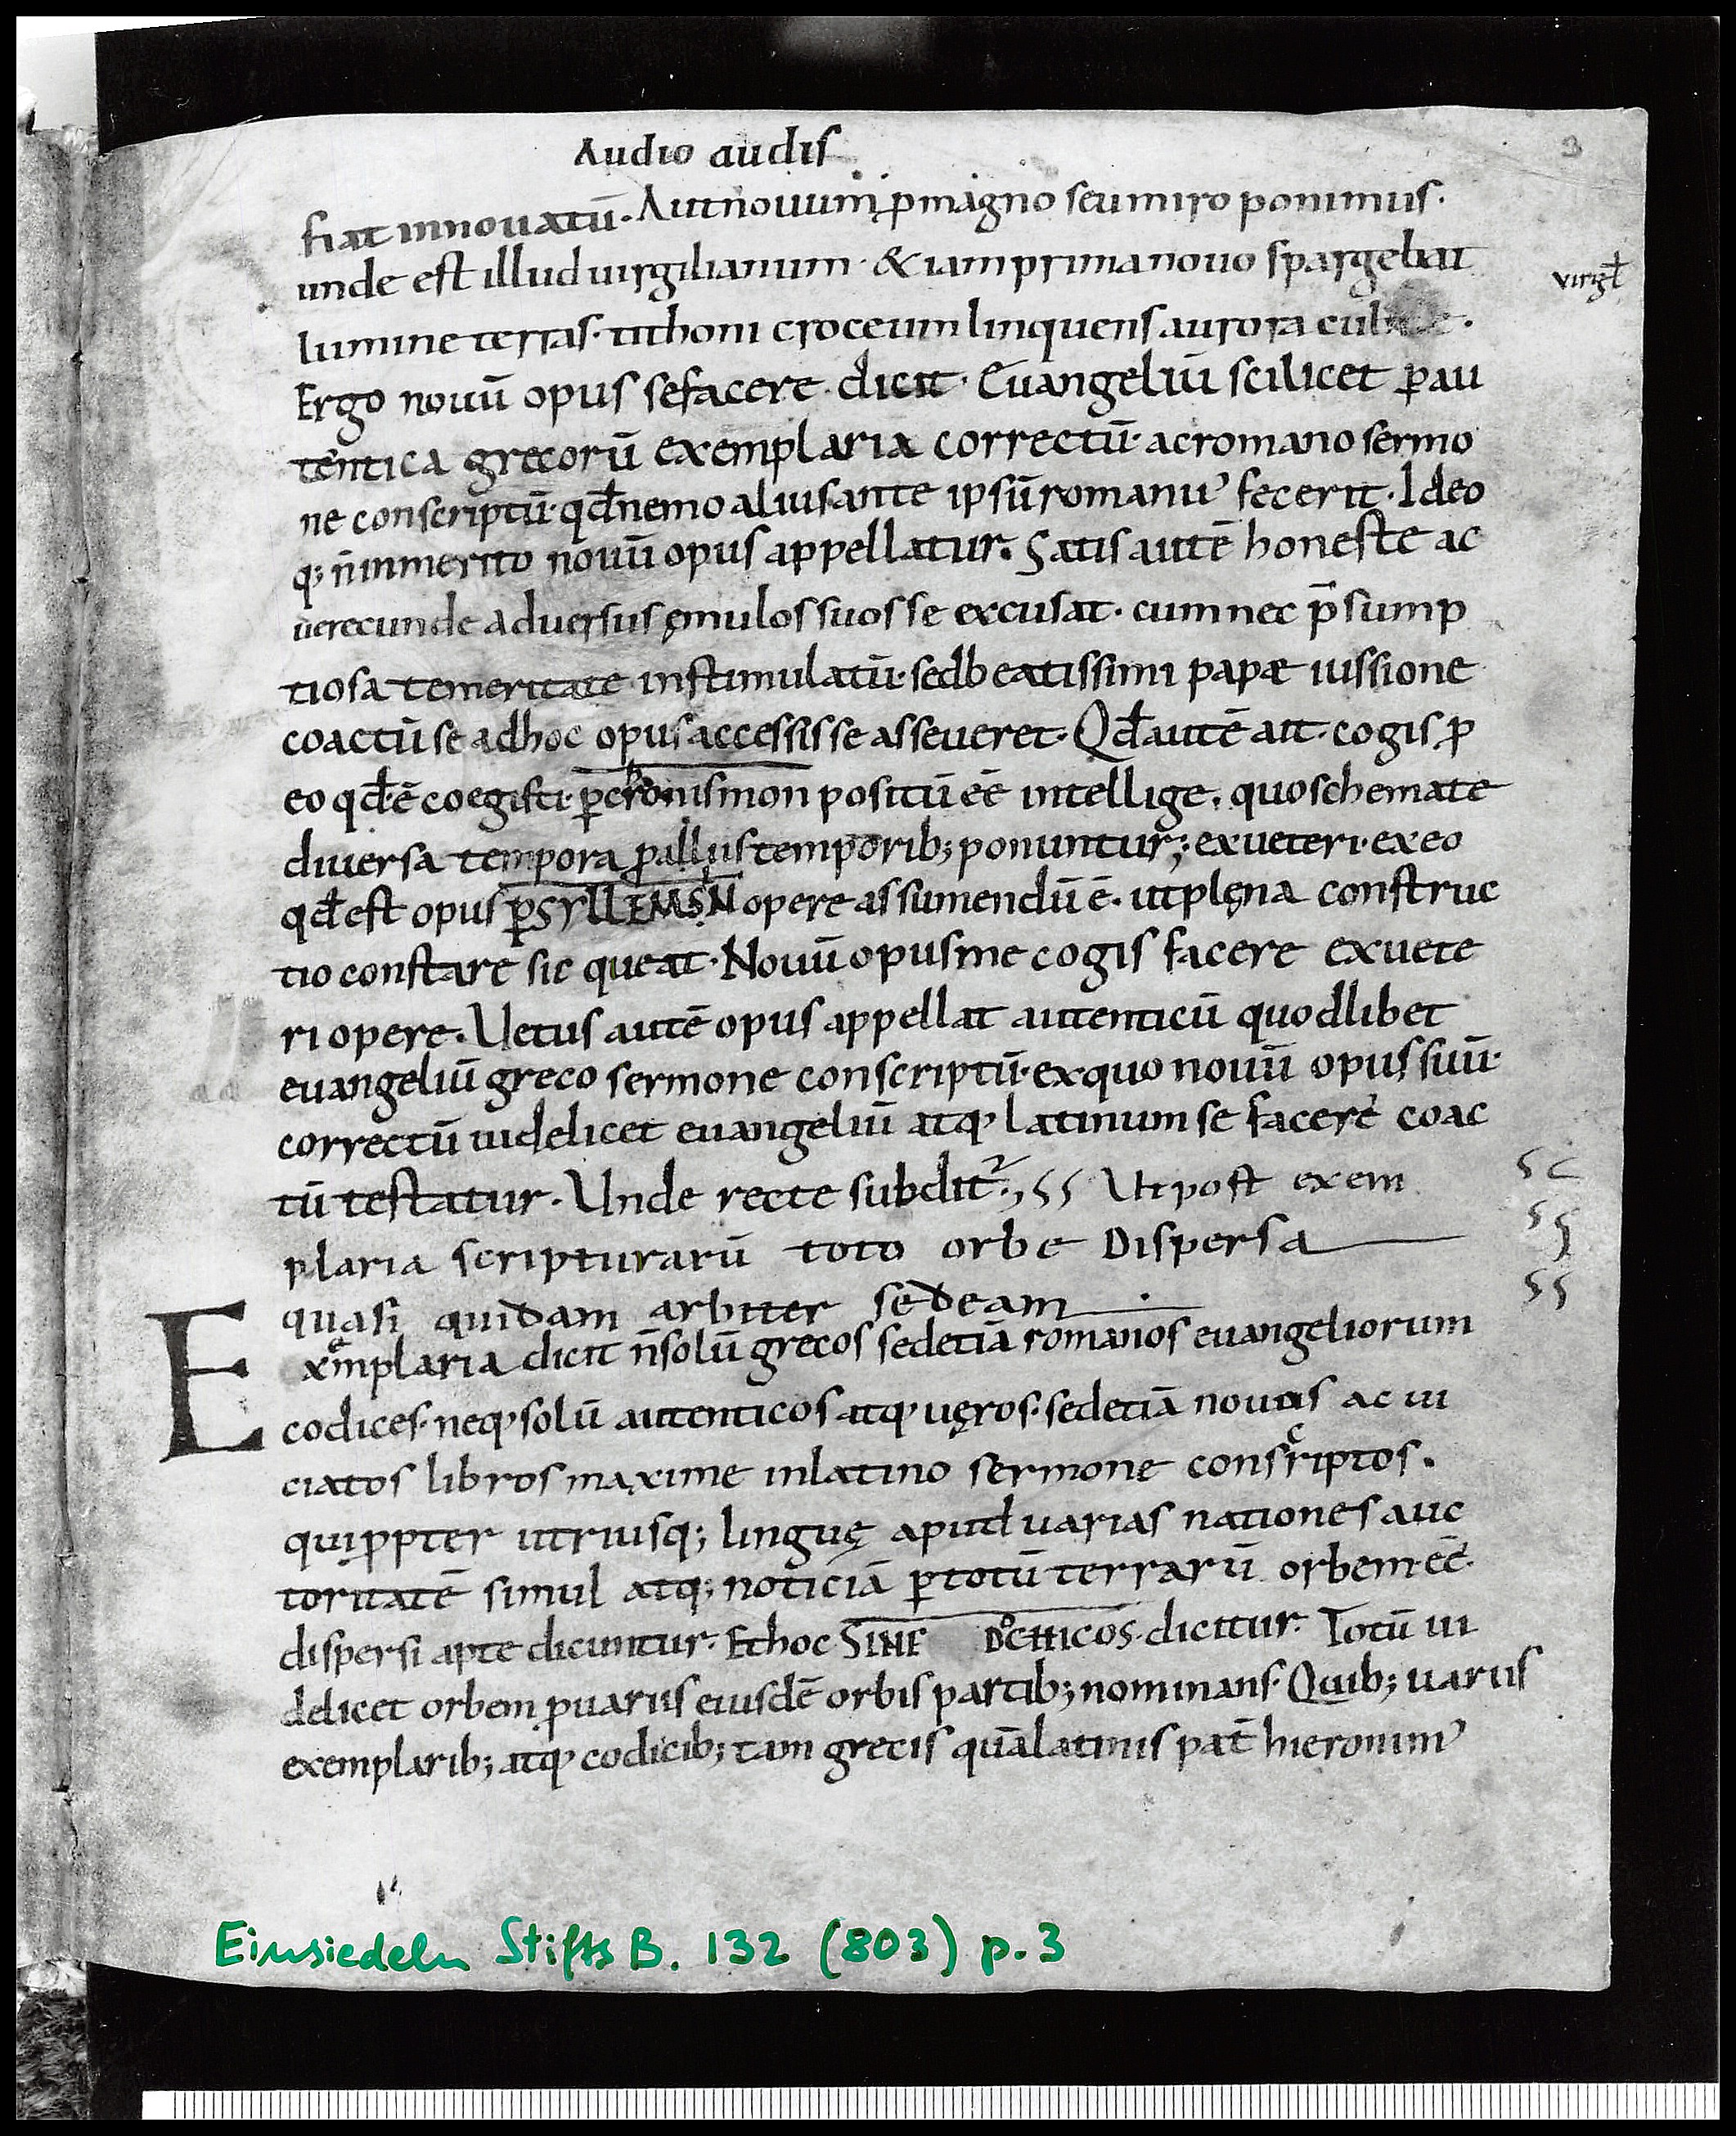 Audio audis
3
fiat innouatū. Aut nouum p̱ magno seu miro ponimus.
unde est illud uirgilianum· & iam prima nouo spargebat
virgł
lumine terras· tithoni croceum linquens aurora
Ergo nouū opus se facere dicit· Euangeliū scilicet p̱ au
tentica grecorū exemplaria correctū· ac romano sermo
ne conscriptū· qđ nemo alius ante ipsū romanuꝰ fecerit· Ideo
q; n̄ inmerito nouū opus appellatur. Satis autē honeste ac
uerecunde aduersus ęmulos suos se excusat· cum nec p̄sump
tiosa temeritate instimulatū· sed beatissimi papæ iussione
coactū se ad hoc opus accessisse asseueret· Qđ autē ait· cogis ꝓ
eo qđ ē coegisti· ꝑ cronismon positū eē intellige. quo schemate
diuersa tempora ꝓ aliis temporib; ponuntur; ex ueteri· ex eo
qđ est opus ꝑ SYLLEMSIN opere assumendū ē· ut plęna construc
tio constare sic queat· Nouū opus me cogis facere ex uete
ri opere. Uetus autē opus appellat autenticū quodlibet
euangeliū greco sermone conscriptū· ex quo nouū opus suū·
correctū uidelicet euangeliū atqꝰ latinum se facere coac
tū testatur. Unde recte subdit᷑., SS Ut post exem
SC
plaria scripturarū toto orbe Dispersa
SS
quasi quidam arbiter sedeam
SS
Exemplaria dicit n̄ solū grecos sed etiā romanos euangeliorum
codices· neqꝰ solū autenticos atqꝰ uęros· sed etiā nouos ac ui
ciatos libros maxime in latino sermone conscriptos.
qui ꝓpter utriusq; linguę apud uarias nationes auc
toritatē simul atq; noticiā ꝑ totū terrarū orbem eē·
dispersi apte dicuntur· Et hoc SINE DOCHICOS· dicitur. Totū ui
delicet orbem ꝓ uariis eiusdē orbis partib; nominans· Quib; uariis
exemplarib; atqꝰ codicib; tam grecis quā latinis pat̄ hieronimꝰ
Einsiedeln Stifts B. 132 (803) p. 3